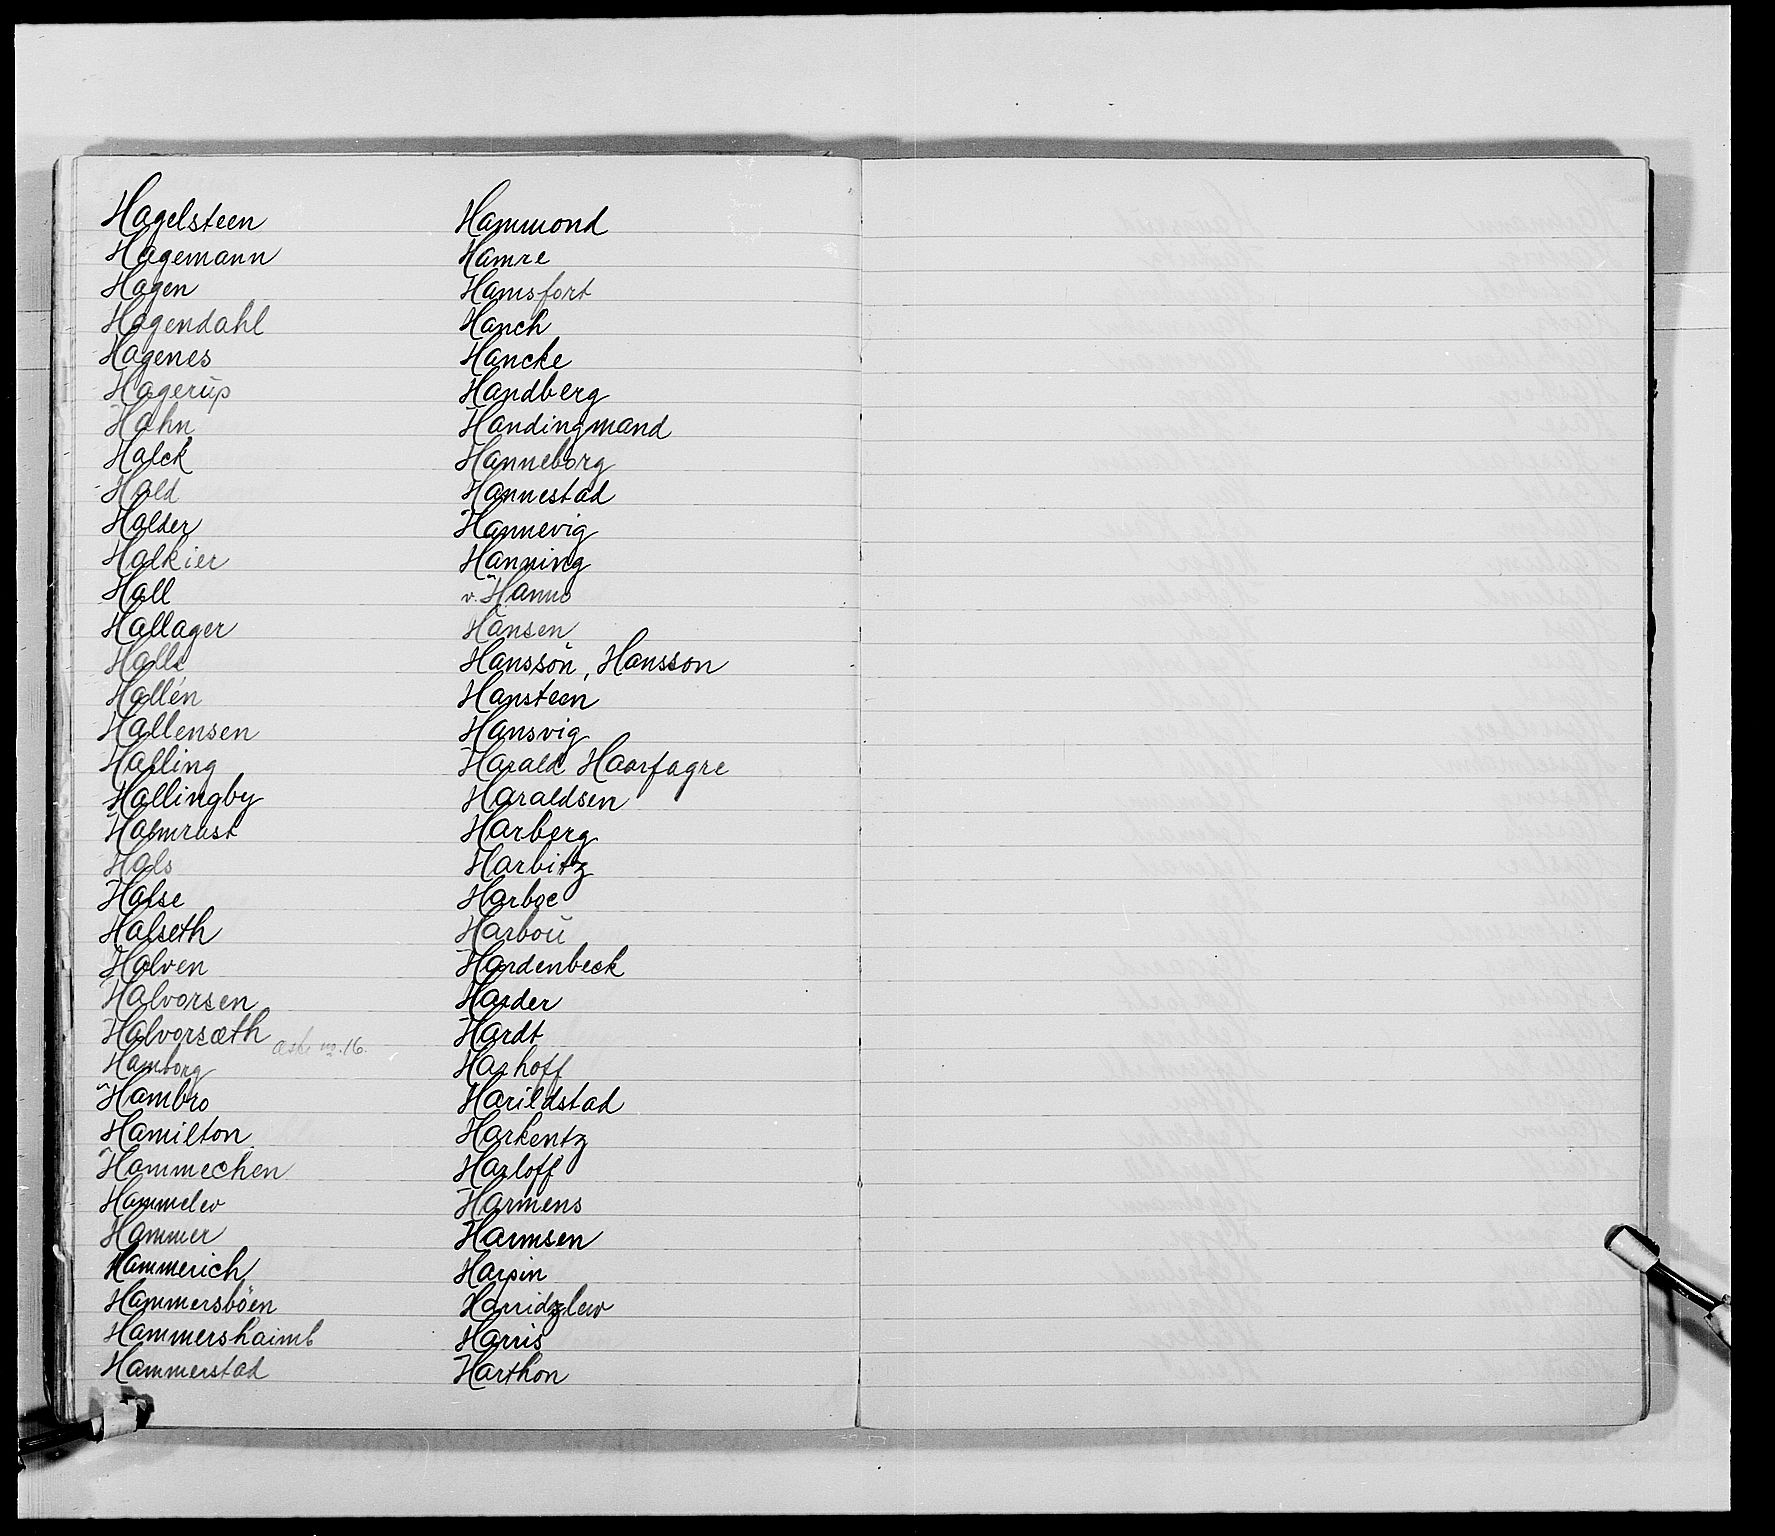 Hagelsteen
Hagemann
Hagen
Hagendahl
Hagenes
Hagerup
Hahn
Halck
Hald
Halder
Halkier
Hall
Hallager
Halle
Hallén
Hallensen
Halling
Hallingby
Halmrast
Hals
Halse
Halseth
Halven
Halvorsen
Halvorsæth
Hamborg
Hambro
Hamilton
Hammechen
Hammelev
Hammer
Hammerich
Hammersbøen
Hammershaimb
Hammerstad
Hammond
Hamre
Hamsfort
Hanch
Hancke
Handberg
Handingmand
Hanneborg
Hannestad
Hannevig
Hanning
v. Hanno
Hansen
Hanssøn, Hansson
Hansteen
Hansvig
Harald Haarfagre
Haraldsen
Harberg
Harbitz
Harboe
Harbou
Hardenbeck
Harder
Hardt
Harhoff
Harildstad
Harkentz
Harloff
Harmens
Harmsen
Harpin
Harridzlew
Harris
Harthon